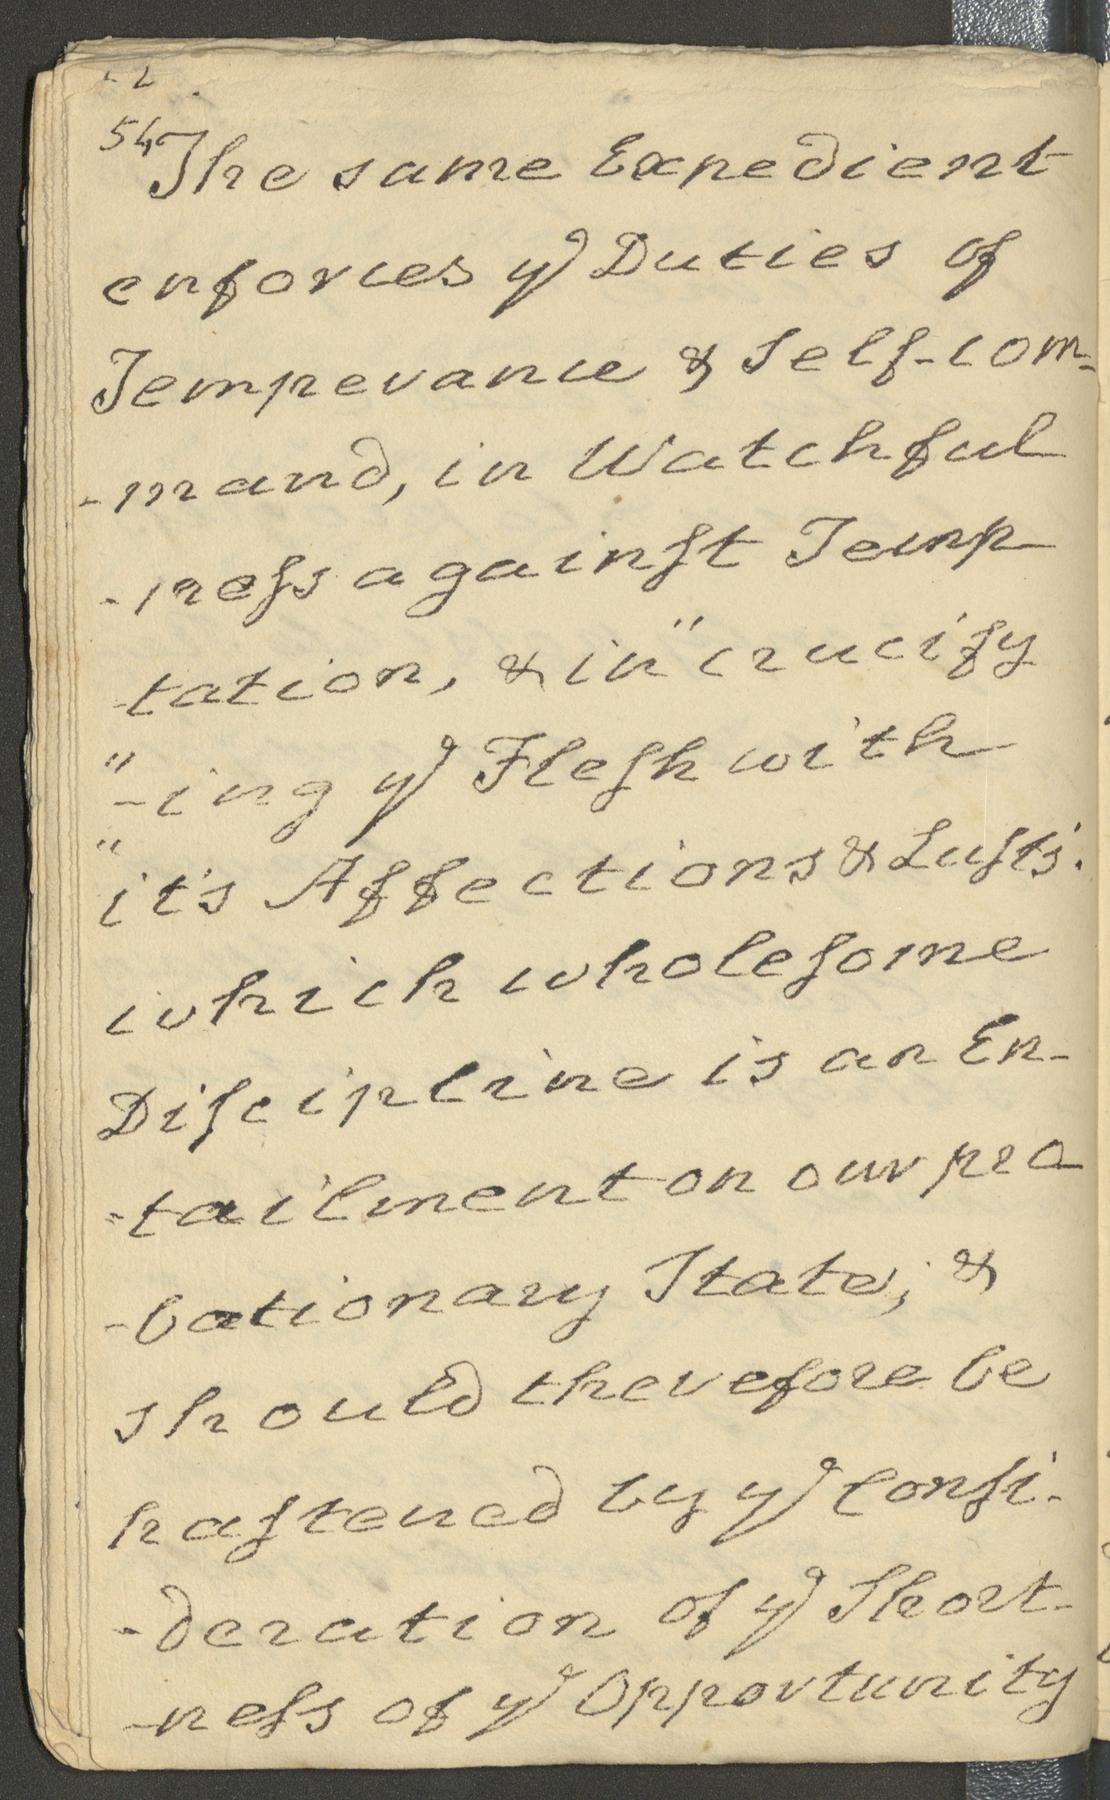 54
The same Expedient
enforces ye Duties of
Temperance & Self-com-
-mand, in Watchful
-neſs againſt Temp
-tation, & in "crucify
"-ing ye Fleſh with
"it's Affections & Luſts".
which wholeſome
Diſcipline is an En-
-tailment on our pro
-bationary State; &
should therefore be
haſtened by ye Conſi-
-deration of ye Short-
-neſs of ye Opportunity